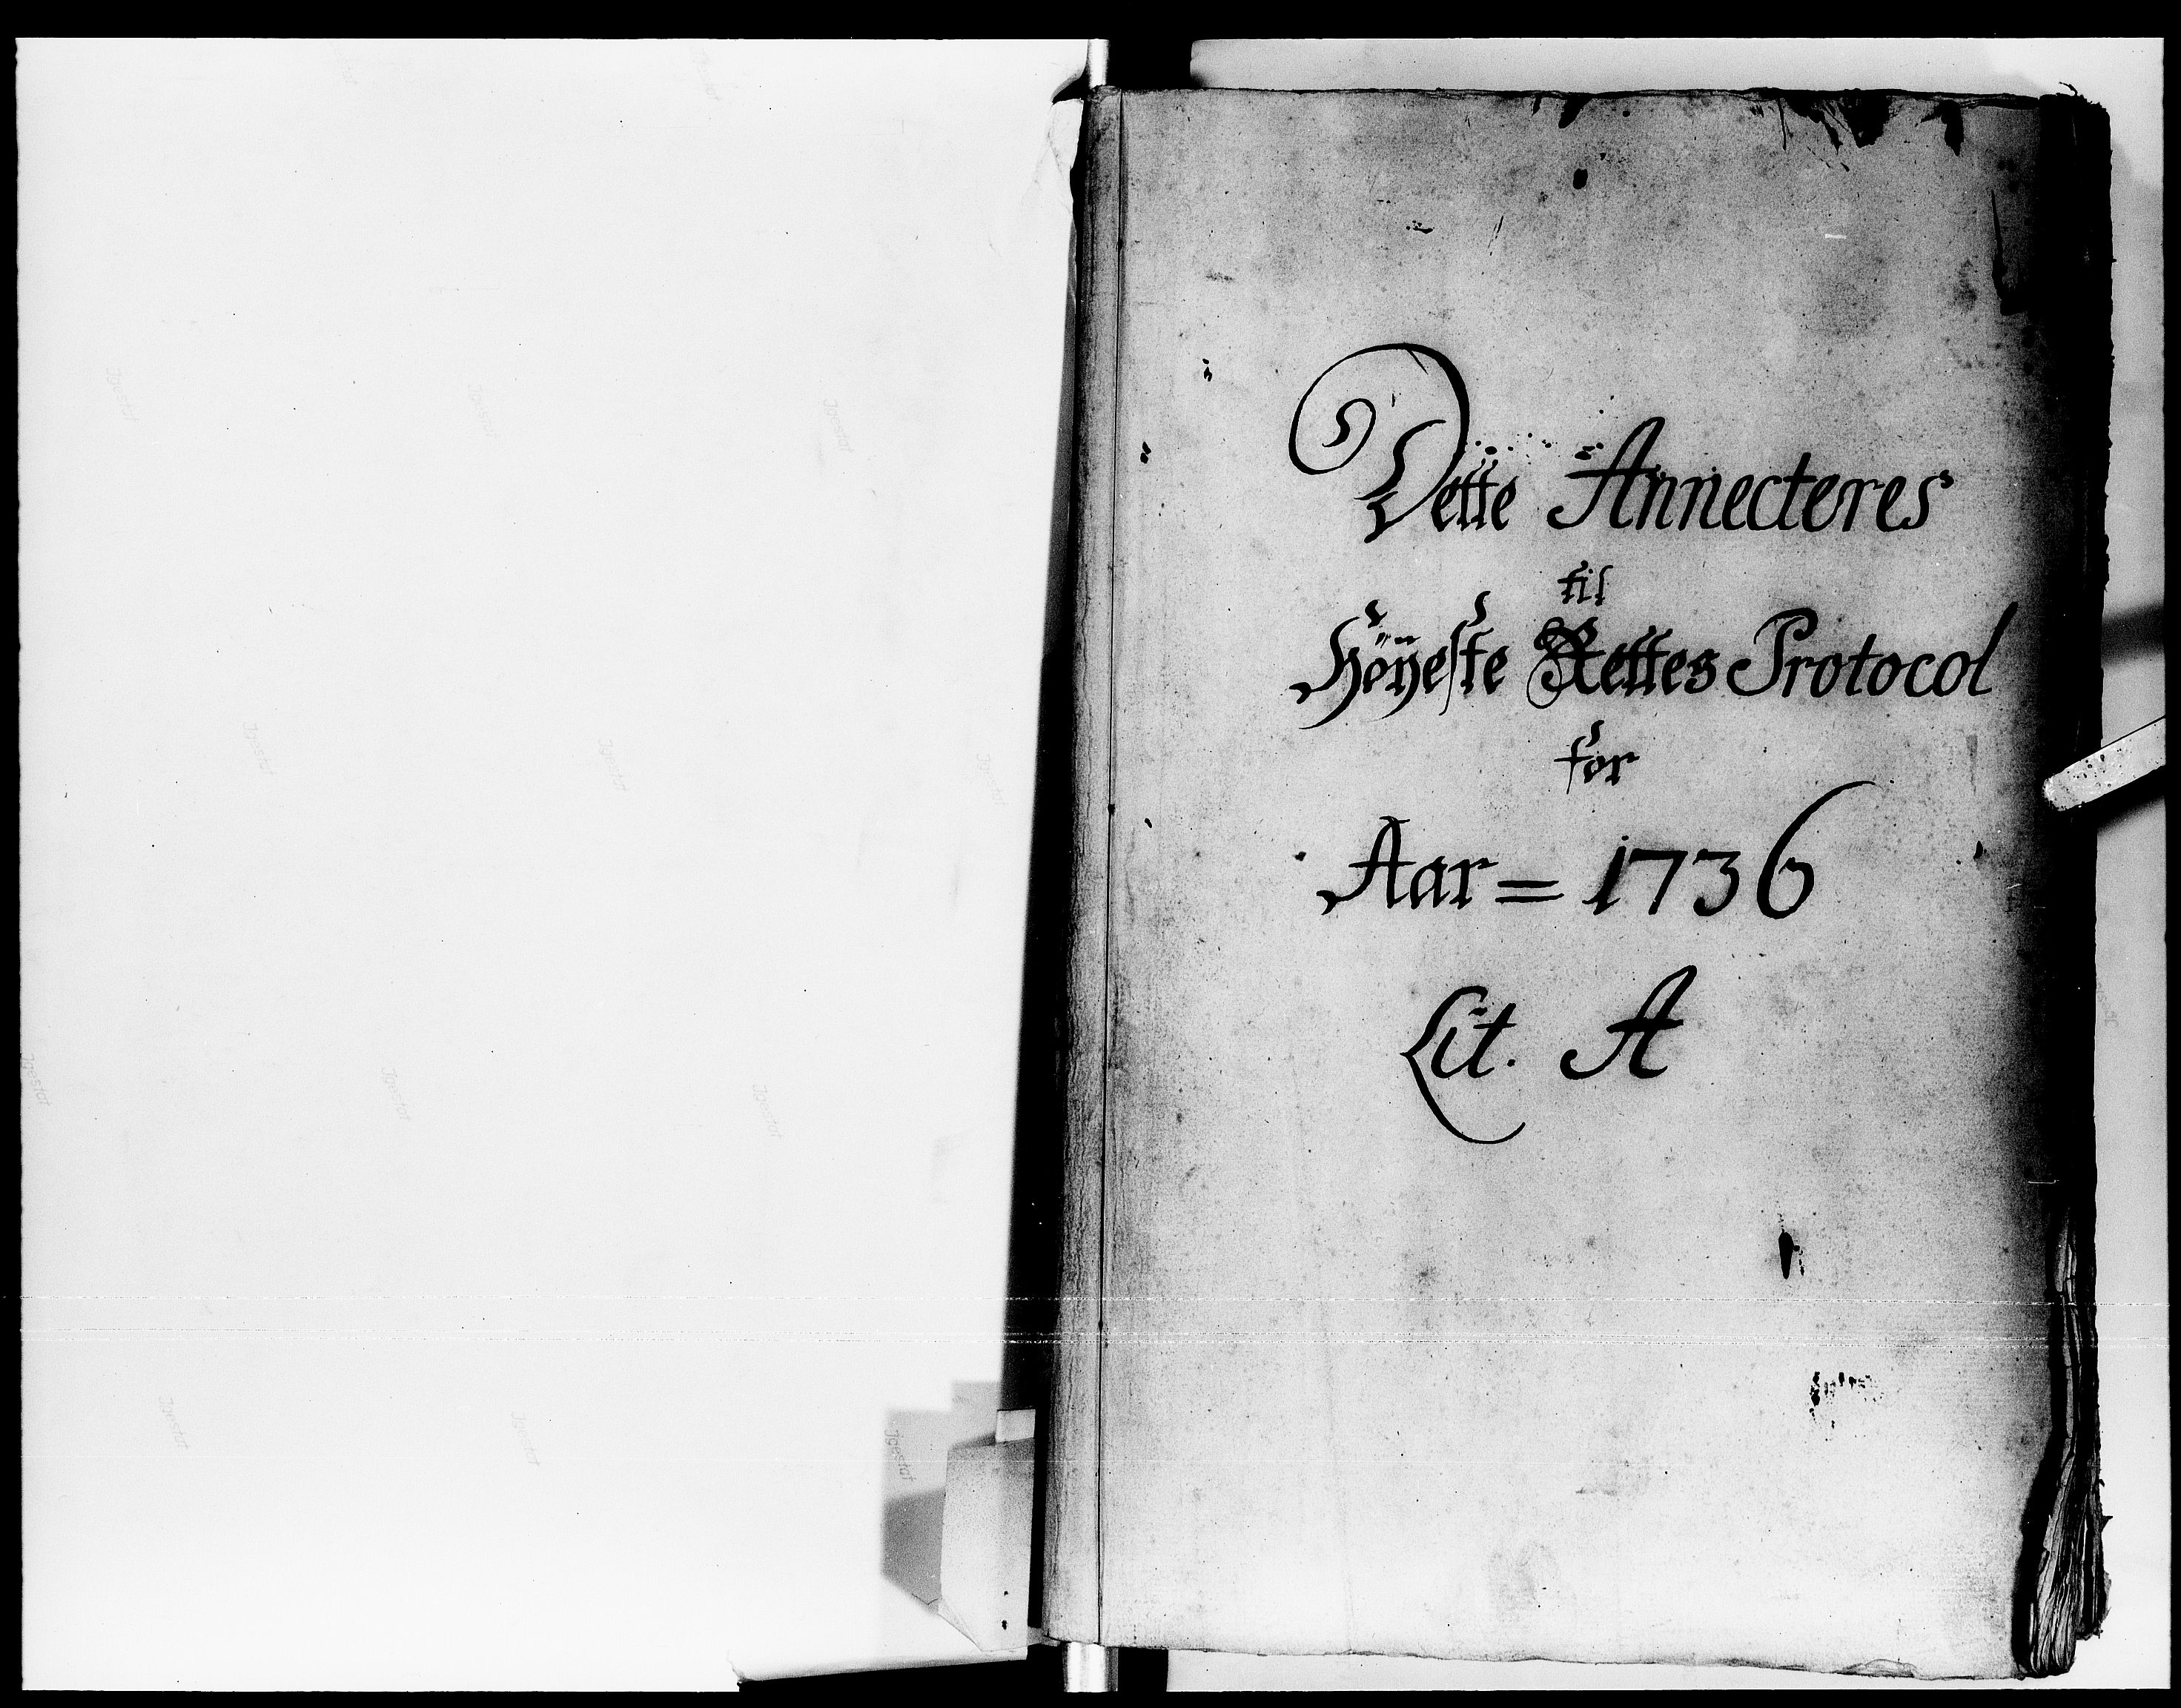 Dette Annecteres
til
Höyeste Rettes Protocol
for
Aar = 1736
Lit. A